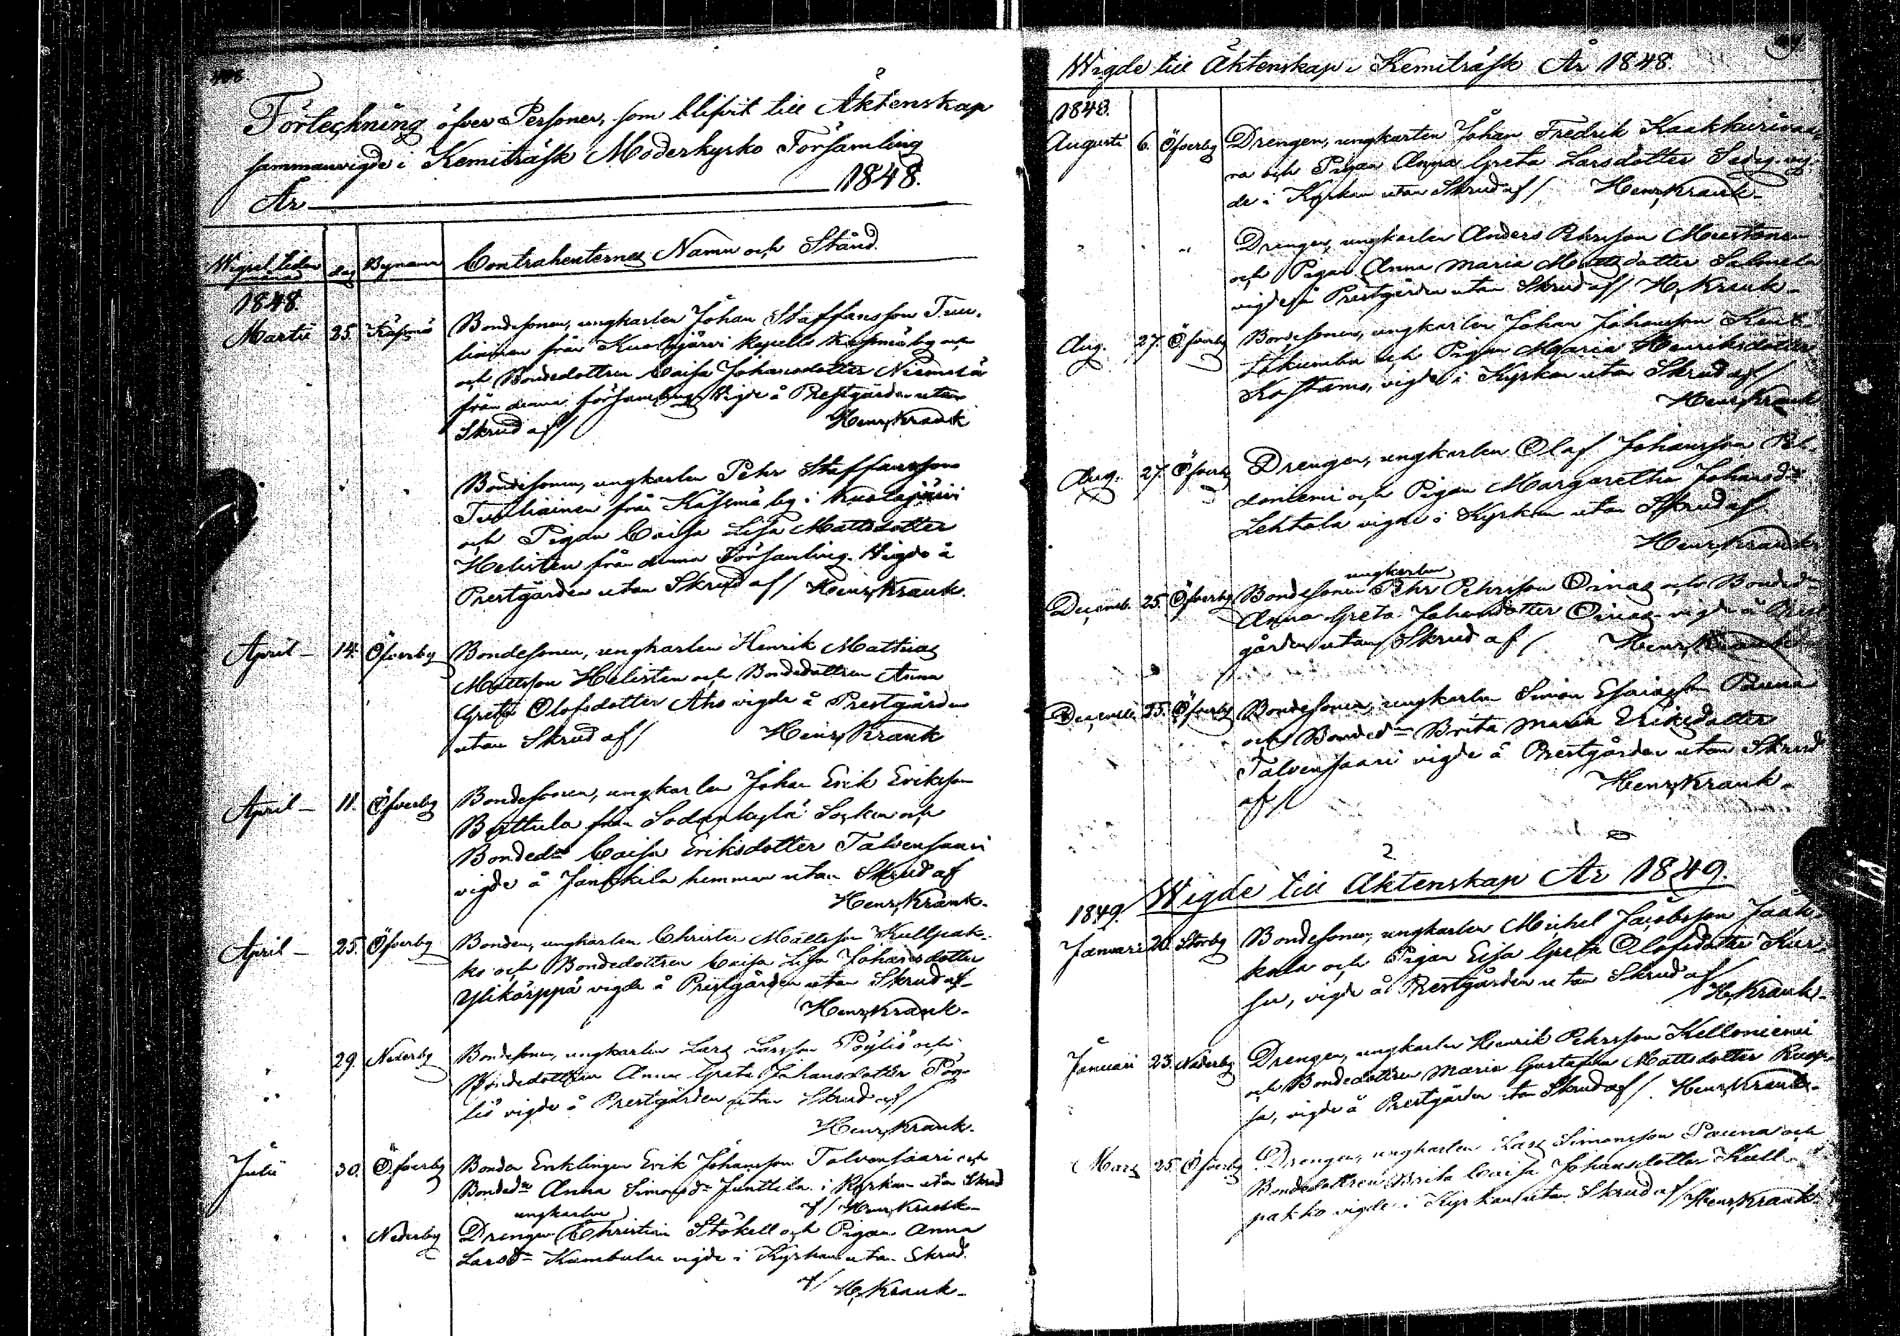 Förteckning öfver Personer, som blifvit till Äktenskap
sammanvigde i Kemiträsk Moderkyrko Församling
År 1848.
Wigsel tiden dag Bynamn Contrahenternas Namn och Stånd.
1848.
Martii 25. Käsmä Bondesonen, ungkarlen Johan Staffansson Tuu-
liainen från Kuolajärvi Kapells Käsmä by
och Bondedottren Caisa Johansdotter Niemelä
från denna församling Vigde å Prestgården utan
Skrud af/ Henr. Krank
Bondesonen, ungkarlen Pehr Staffansson
Tuuliainen från Käsmä by i Kuolajärvi
och Pigan Caisa Lisa Mattsdotter
Helisten från denna Församling. Vigde å
Prestgården utan Skrud af/ Henr. Krank.
April 14. Öfverby Bondesonen, ungkarlen Henrik Mathias
Mattsson Helisten och Bondedottren Anna
Greta Olofsdotter Aho vigde å Prestgården
utan Skrud af/ Henr. Krank
April 11. Öfverby Bondesonen, ungkarlen Johan Erik Eriksson
Perttula från Sodankylä Socken och
Bonded:n Caisa Eriksdotter Talvensaari
vigde å Junkkila hemman utan Skrud af
Henr. Krank.
April 25. Öfverby Bonden, ungkarlen Christer Mattsson Kullpak-
ko och Bondedottren Caisa Lisa Johansdotter
Ylikärppä vigde å Prestgården utan Skrud af
Henr. Krank.
29. Nederby Bondesonen, ungkarlen Lars Larsson Pöyliö och
Bondedottren Anna Greta Johansdotter Pöy-
liö vigde å Prestgården utan Skrud af/
Henr. Krank.
Julii 30. Öfverby Bonden Enklingen Erik Johansson Talvensaari och
Bonded:n Anna Simonsd:r Junttila i Kyrkan utan Skrud
af/ Henr. Krank.
ungkarlen
Nederby Drengen Christian Stökell och Pigan Anna
Larsd:r Kumbula vigde i Kyrkan utan Skrud.
af/ H. Krank.
Wigde till Äktenskap i Kemiträsk År 1848.
1848.
Augusti 6. Öfverby Drengen, ungkarlen Johan Fredrik Kaakkurivaa-
ra och Pigan Anna Greta Larsdotter Sedig vig-
de i Kyrkan utan Skrud af/ Henr. Krank.
Drengen, ungkarlen Anders Pehrsson Mustonen
och Pigan Anna Maria Mattsdotter Salmela
vigde å Prestgården utan Skrud af/ H. Krank.
Aug. 27. Öfverby Bondesonen, ungkarlen Johan Johansson
och Pigan Maria Henriksdotter
Kostamo, vigde i Kyrkan utan Skrud af/
Henr. Krank
Aug. 27. Öfverby Drengen, ungkarlen Olof Johansson
och Pigan Margaretha Johansd:r
Lehtola vigde i Kyrkan utan Skrud af
Henr. Krank
ungkarlen
Decemb. 25. Öfverby Bondesonen Pehr Pehrsson Oinas och Bonded:n
Anna Greta Johansdotter Oinas vigde å Prest
gården utan Skrud af/ Henr. Krank
Decemb. 25. Öfverby Bondesonen, ungkarlen Simon Esaiasson Pauna
och Bonded:n Brita Maria Eriksdotter
Talvensaari vigde å Prestgården utan Skrud
af/ Henr. Krank.
Wigde till Äktenskap År 1849.
1849.
Januari 20. Storby Bondesonen, ungkarlen Michel Jacobsson Jaak-
kola och Pigan Lisa Greta Olofsdotter Kur-
su, vigde å Prestgården utan Skrud af
/H. Krank.
Januari 23. Nederby Drengen, ungkarlen Henrik Pehrsson Kelloniemi
och Bondedottren Maria Gustafva Mattsdotter
sa, vigde å Prestgården utan Skrud af/ Henr. Krank.
Mars 25. Öfverby Drengen, ungkarlen Lars Simonsson Pauna och
Bondedottren Brita Caisa Johansdotter Kull-
pakko vigde i Kyrkan utan Skrud af/ Henr. Krank.